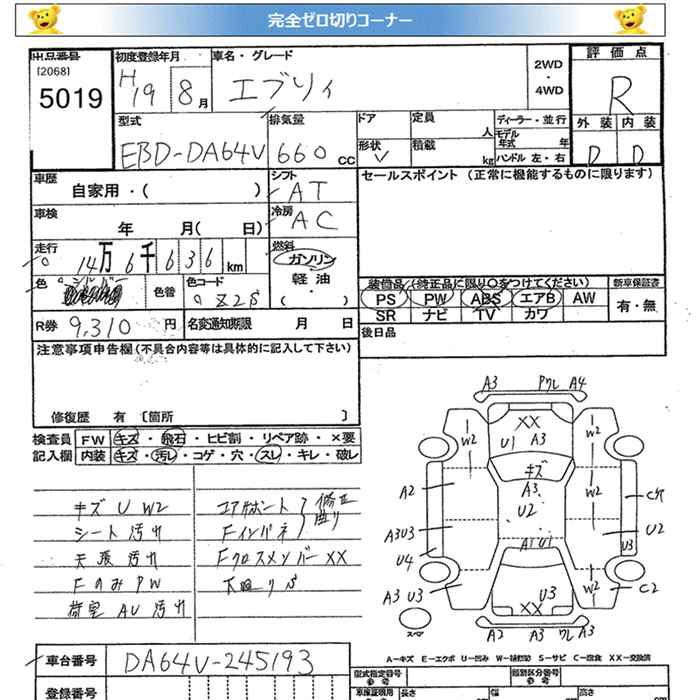 完全ゼロ切りコーナー
出品番号
[2068]
5019
初度登録年月
H19 8月
車名・グレード
エブリィ
2WD
・
4WD
評価点
R
型式
EBD-DA64V
排気量
660cc
ドア
形状
V
定員
人
積載
kg
ディーラー・並行
モデル年式 年
ハンドル 左・右
外装 内装
D D
車歴
自家用・( )
シフト
AT
セールスポイント (正常に機能するものに限ります)
車検
年 月( 日)
冷房
AC
走行
14万6千636km
燃料
ガソリン
軽油
色
シルバー
色替
色コード
Z2S
装備品(純正品に限り○をつけてください)
新車保証書
PS PW ABS エアB AW
有・無
SR ナビ TV カワ
R券 9,310円
名変通知期限 月 日
後日品
注意事項申告欄(不具合内容等は具体的に記入して下さい)
修復歴 有 〔箇所 〕
検査員
記入欄
FW キズ・飛石・ヒビ割・リペア跡・×要
内装 キズ・汚レ・コゲ・穴・スレ・キレ・破レ
キズ U W2
シート 汚れ
天張 汚れ
Fのみ PW
荷室 AU 汚れ
コアサポート
Fインパネ
修正
曲り
Fクロスメンバー XX
下廻りS
A3 ワレ A4
XX
U1 A3
W2 W2
キズ
A3
U2
A2
W2
A3U3
U2
U4
U3
A1 U1
A3 U3
W2
C2
U3
XX
スペア
A2 A3U3 ワレ A3
A−キズ E−エクボ U−凹み W−補修跡 S−サビ C−腐食 XX−交換済
車台番号
DA64V-245193
登録番号
型式指定番号
参考
類別区分番号
参考
車庫証明用
参考
長さ
幅
高さ